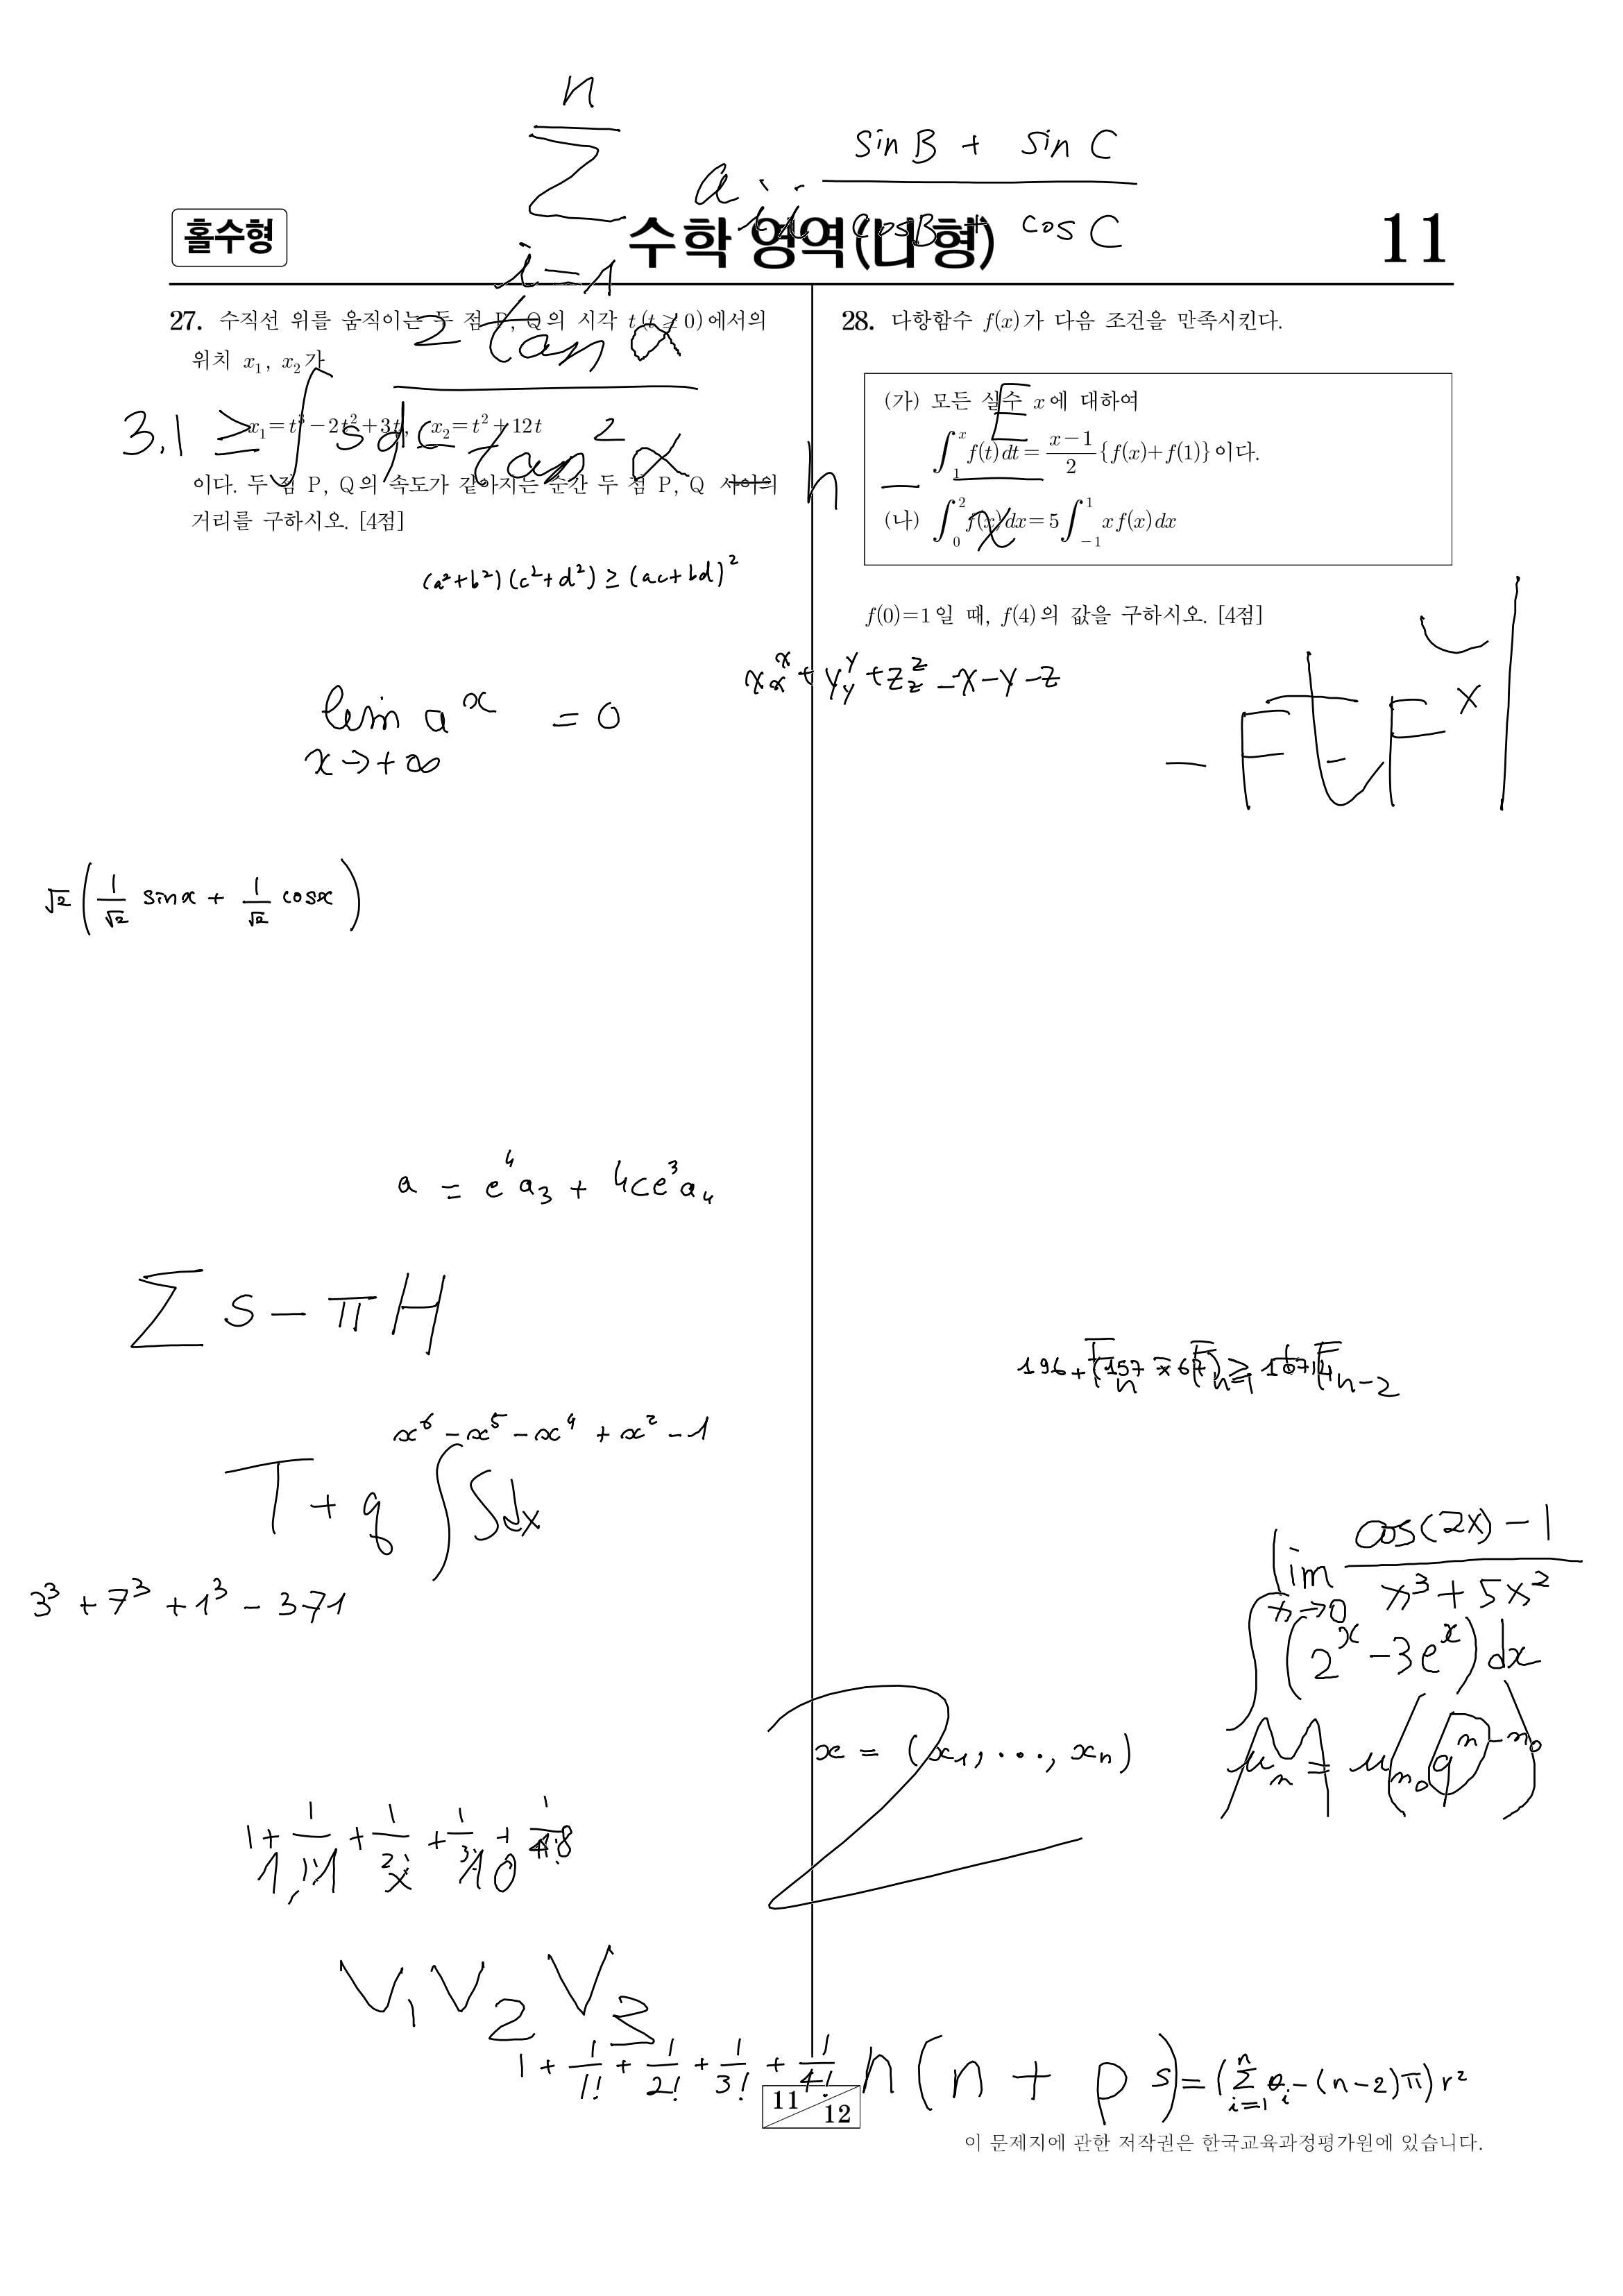 n
∑ a_{ii}
i=1
sin B + sin C
cos B + cos C
홀수형
수학 영역(나형)
11
27. 수직선 위를 움직이는 두 점 P, Q의 시각 t(t≥0)에서의
위치 x₁, x₂가
x₁=t³−2t²+3t, x₂=t²+12t
이다. 두 점 P, Q의 속도가 같아지는 순간 두 점 P, Q 사이의
거리를 구하시오. [4점]
2 tan α
tan² α
3.1 ≥
(a²+b²)(c²+d²) ≥ (ac+bd)²
lim a^x = 0
x→+∞
√2 (1/√2 sin x + 1/√2 cos x)
a = e⁴a₃ + 4ce³a₄
∑ s − π H
x⁶ − x⁵ − x⁴ + x² − 1
T + q ∫ S dx
3³ + 7³ + 1³ − 371
V₁ V₂ V₃
1 + 1/1! + 1/2! + 1/3! + 1/4!
28. 다항함수 f(x)가 다음 조건을 만족시킨다.
(가) 모든 실수 x에 대하여
∫₁ˣ f(t)dt = (x−1)/2 {f(x)+f(1)}이다.
(나) ∫₀² f(x)dx = 5∫₋₁¹ xf(x)dx
f(0)=1일 때, f(4)의 값을 구하시오. [4점]
x_x^x + y_y^y + z_z^z − x − y − z
lim cos(2x) − 1
x→0 x³ + 5x²
∫ (2^x − 3e^x) dx
x = (x₁, ..., x_n)
n(n + p
s = (∑_{i=1}^{n} θ_i − (n−2)π) r²
11
12
이 문제지에 관한 저작권은 한국교육과정평가원에 있습니다.